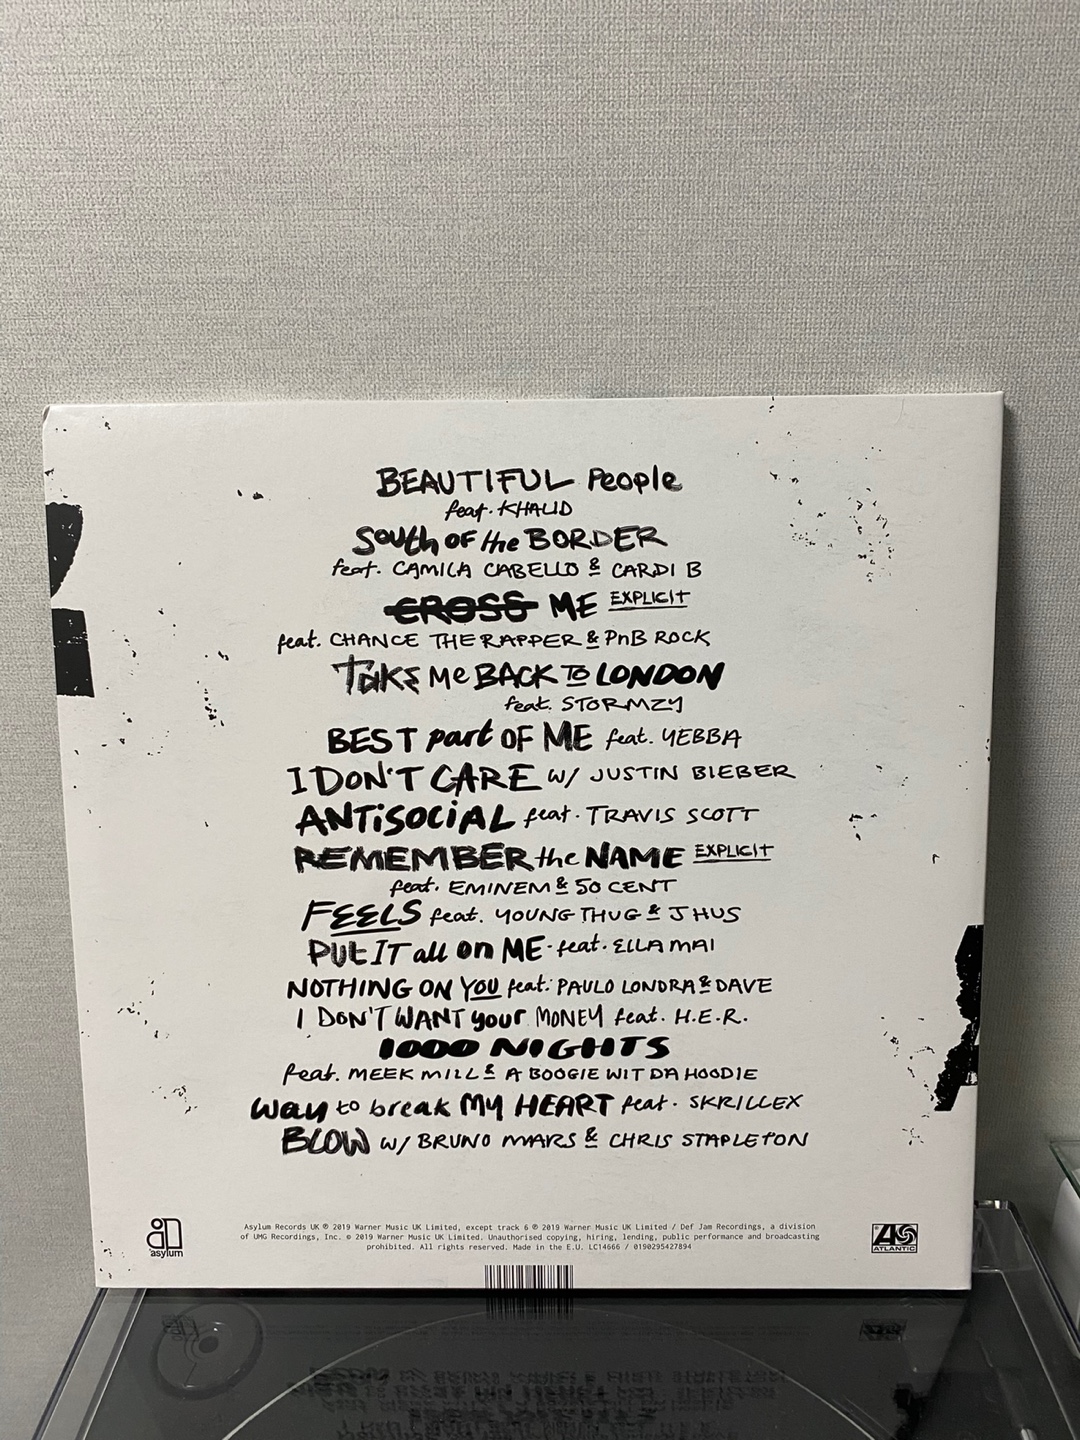 BEAUTIFUL People
feat. KHALID
South OF the BORDER
feat. CAMILA CABELLO & CARDI B
CROSS ME EXPLICIT
feat. CHANCE THE RAPPER & PnB ROCK
TAKE Me BACK TO LONDON
feat. STORMZY
BEST part OF ME feat. YEBBA
I DON'T CARE w/ JUSTIN BIEBER
ANTiSOCiAL feat. TRAVIS SCOTT
REMEMBER the NAME EXPLICIT
feat. EMINEM & 50 CENT
FEELS feat. YOUNG THUG & J HUS
PUt IT all on ME. feat. ELLA MAI
NOTHING ON YOU feat. PAULO LONDRA & DAVE
I DON'T WANT your MONEY feat. H.E.R.
1000 NIGHTS
feat. MEEK MILL & A BOOGIE WIT DA HOODIE
way to break MY HEART feat. SKRILLEX
BLOW w/ BRUNO MARS & CHRIS STAPLETON
asylum
Asylum Records UK ℗ 2019 Warner Music UK Limited, except track 6 ℗ 2019 Warner Music UK Limited / Def Jam Recordings, a division
of UMG Recordings, Inc. © 2019 Warner Music UK Limited. Unauthorised copying, hiring, lending, public performance and broadcasting
prohibited. All rights reserved. Made in the E.U. LC14666 / 0190295427894
ATLANTIC